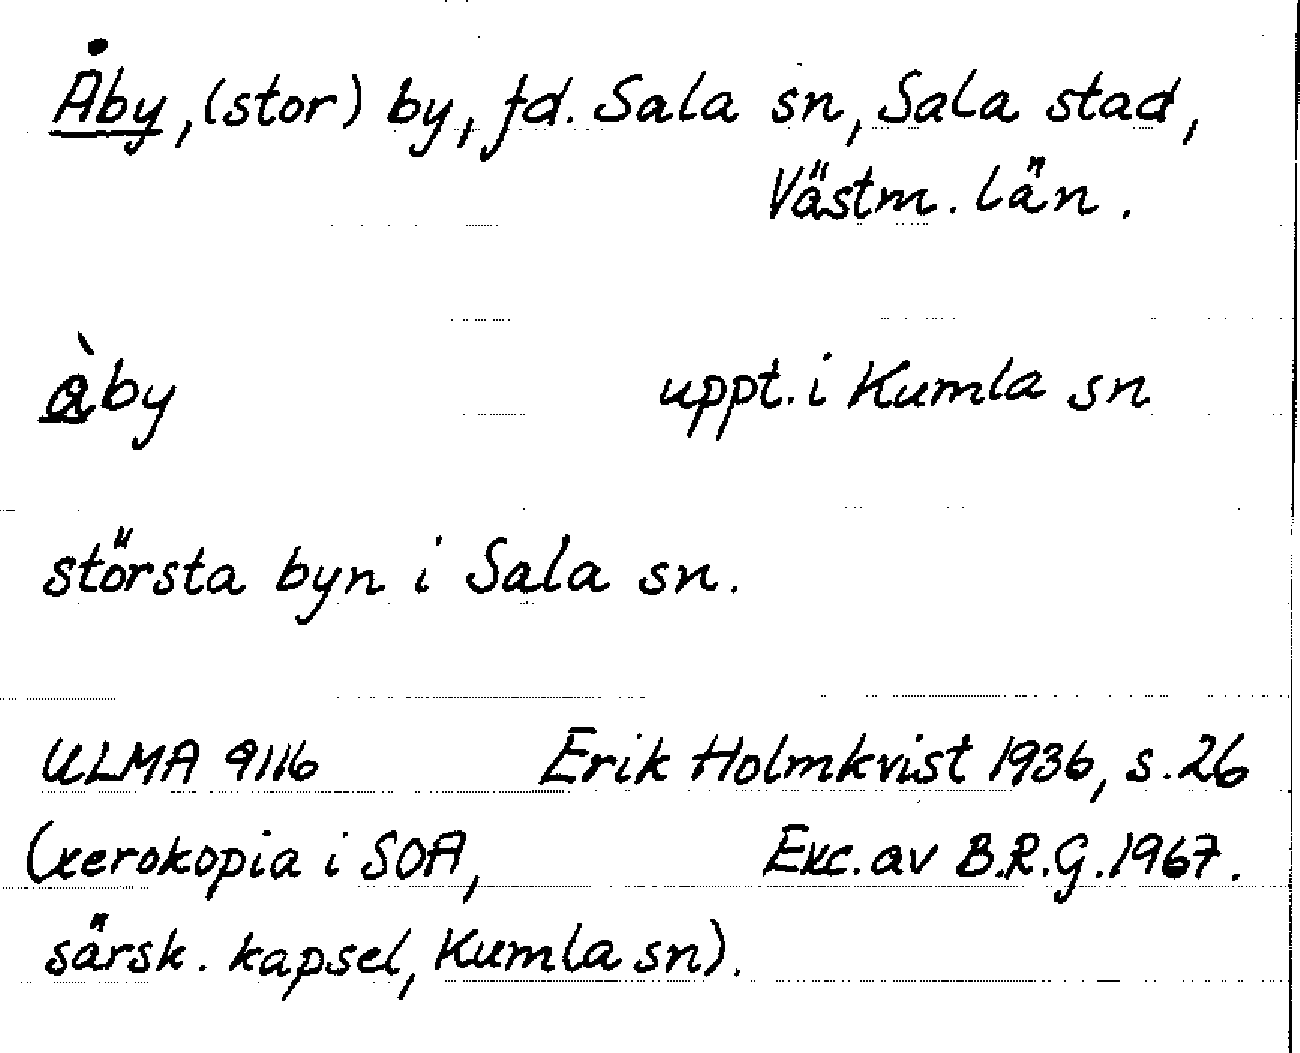 Åby, (stor) by, fd. Sala sn, Sala stad,
Västm. län.
åby uppt. i Kumla sn
största byn i Sala sn.
ULMA 9116 Erik Holmkvist 1936, s. 26
(xerokopia i SOA, Exc. av B.R.G. 1967.
särsk. kapsel, Kumla sn).